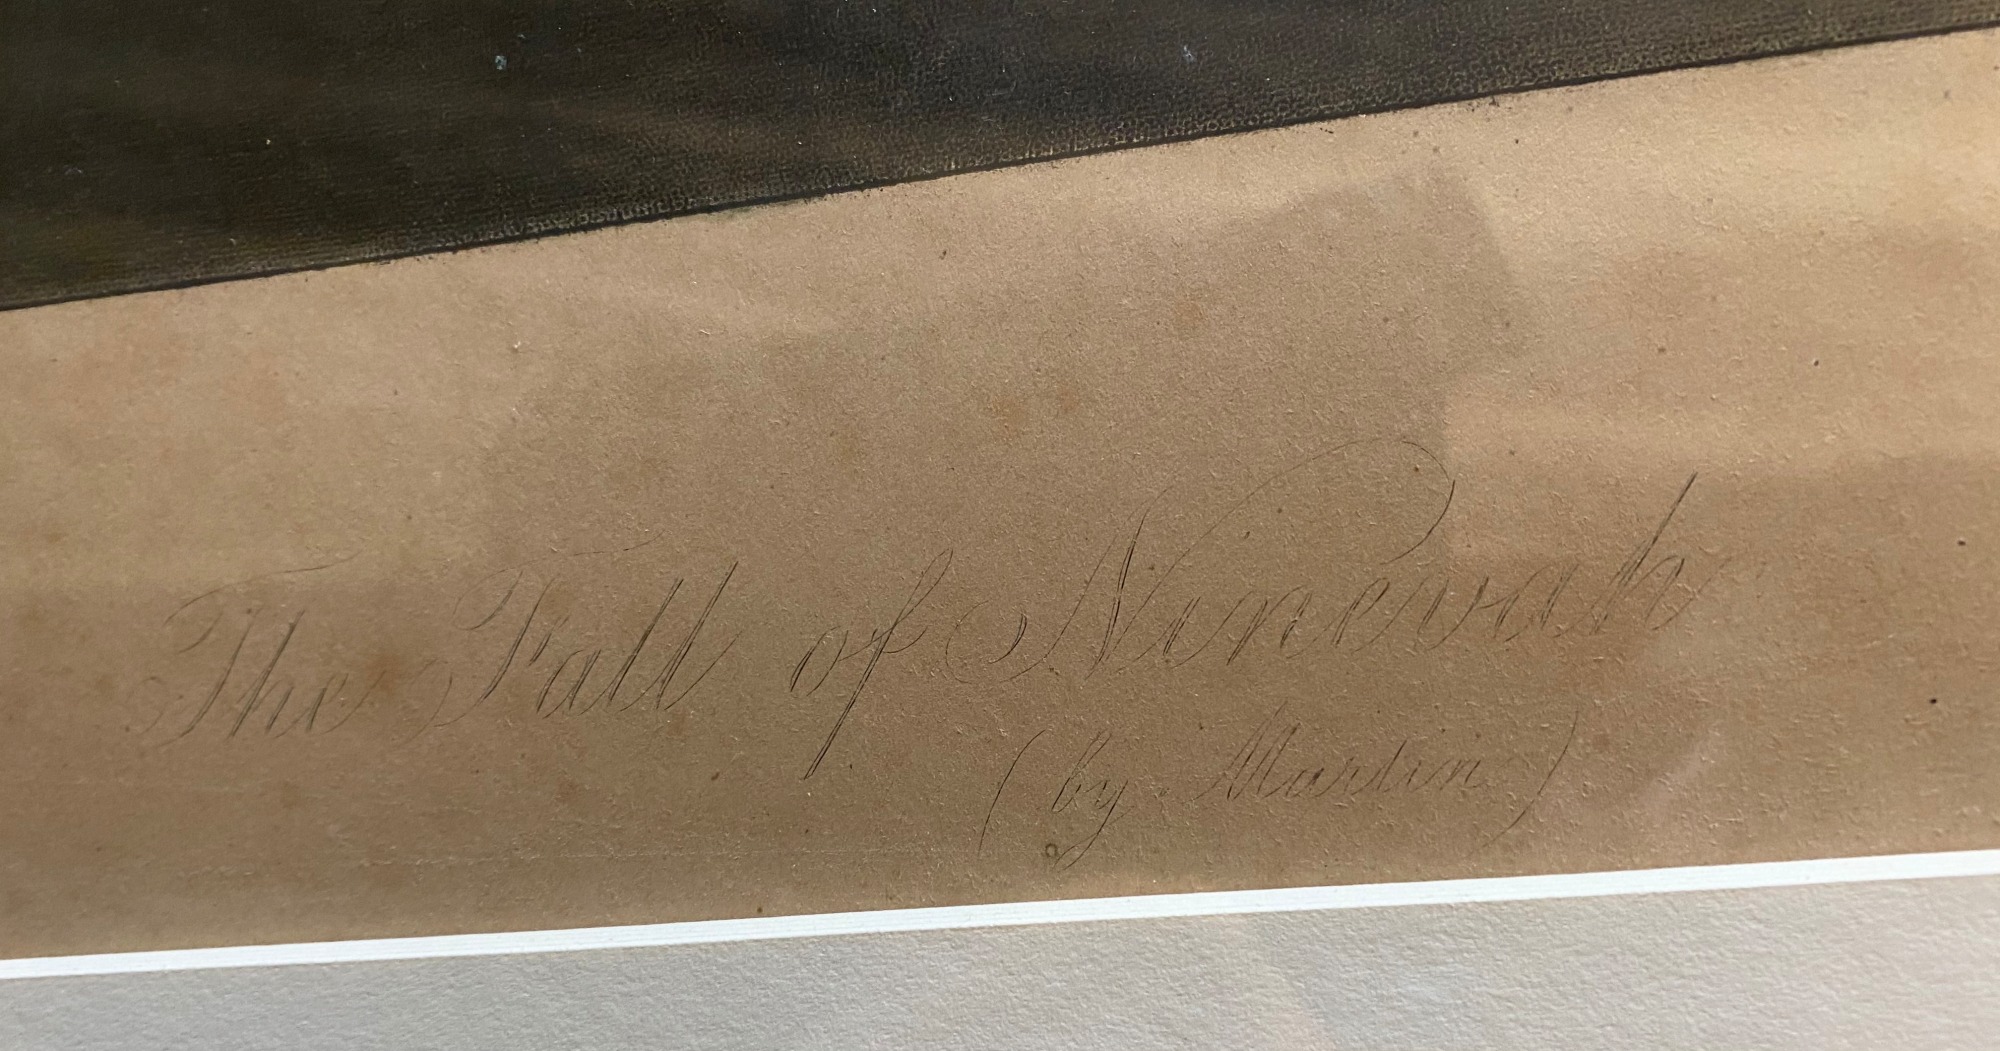 The Fall of Ninevah
(by Martin)